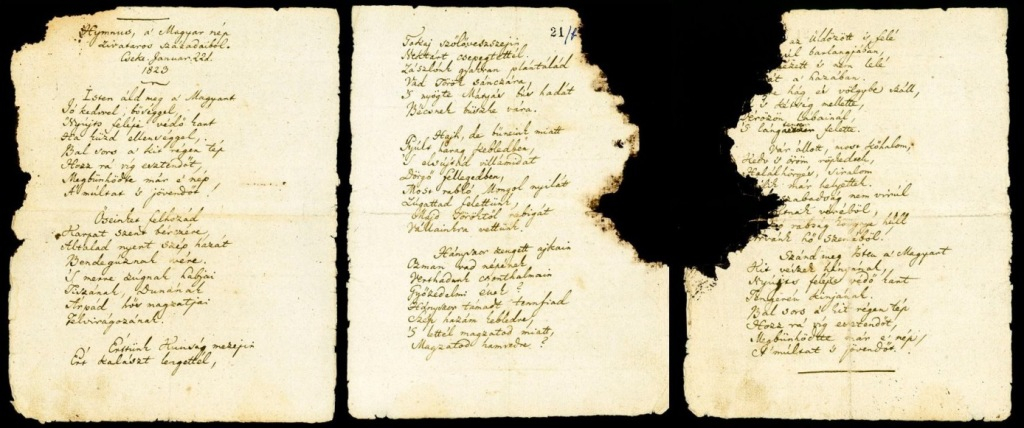 Hymnus, a' Magyar nép
zivataros századaiból.
Cseke, Januar. 22d.
1823
Isten áld meg a' Magyart
Jó kedvvel, bőséggel,
Nyújts feléje védő kart
Ha küzd ellenséggel,
Bal sors a' kit régen tép
Hozz rá víg esztendőt,
Megbűnhődte már e' nép
A' múltat 's jövendőt!
Őseinket felhozád
Kárpát szent bérczére,
Általad nyert szép hazát
Bendegúznak vére.
'S merre zúgnak habjai
Tiszának, Dunának
Árpád hős magzatjai
Felvirágozának.
Értünk Kunság mezején
Ért kalászt lengettél,
21/
Tokaj szőlővesszejin
Nektárt csepegtettél.
Zászlónk gyakran plántálád
Vad Török sánczára
'S nyögte Mátyás bús hadát
Bécsnek büszke vára.
Hajh, de bűneink miatt
Gyúlt harag kebledben,
'S elsújtád villámidat
Dörgő fellegedben,
Most rabló Mongol nyilát
Zúgattad felettünk,
Majd Töröktől rabigát
Vállainkra vettünk.
Hányszor zengett ajkain
Ozman vad népének
Vert hadunk csonthalmain
Győzedelmi ének!
Hányszor támadt tennfiad
Szép hazám kebledre,
'S lettél magzatod miatt,
Magzatod hamvedre?
az üldözött 's felé
barlangjában,
's nem lelé
a' hazában.
hág és völgybe száll,
's kétség mellette,
Vérözön lábainál,
'S lángtenger felette.
Vár állott, most kőhalom,
Kedv 's öröm röpkedtek,
Halálhörgés, siralom
már helyettek.
szabadság nem virúl
véréből,
rabság könnye hull
hő szeméből.
Szánd meg Isten a' Magyart
Kit vészek hányának,
Nyújts feléje védő kart
Tengerén kínjának.
Bal sors a' kit régen tép
Hozz rá víg esztendőt,
Megbűnhődte már e' nép
A' múltat 's jövendőt!